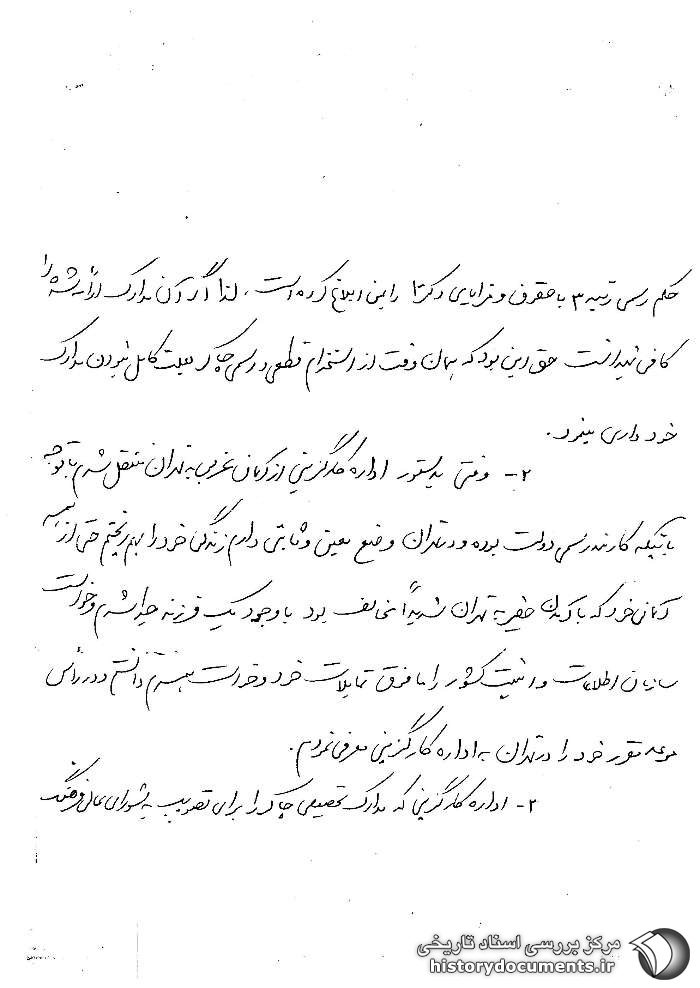 حکم رسمی رتبه ۳ با حقوق و مزایای دکترا را بمن ابلاغ کرده است. لذا اگر آن مدارک ارائه شده را
کافی نمیدانست حق این بود که همان وقت از استخدام قطعی و رسمی چاکر بعلت کامل نبودن مدارک
خودداری مینمود.
۲- وقتی بدستور اداره کارگزینی از کرمان غربی به تهران منتقل شدم با توجه
باینکه کارمند رسمی دولت بوده و در تهران وضع معین و ثابتی دارم زندگی خود را بهم ریختم حتی از
کرمانی خود که با آمدن حقیر به تهران شدیداً مخالف بود با وجود یک فرزند جدا شدم و خواست
سازمان اطلاعات و امنیت کشور را مافوق تمایلات خود و خواست همسرم دانستم و در رأس
موعد مقرر خود را در تهران به اداره کارگزینی معرفی نمودم.
۳- اداره کارگزینی که مدارک تحصیلی چاکر را برای تصویب به شورای عالی فرهنگ
مرکز بررسی اسناد تاریخی
historydocuments.ir